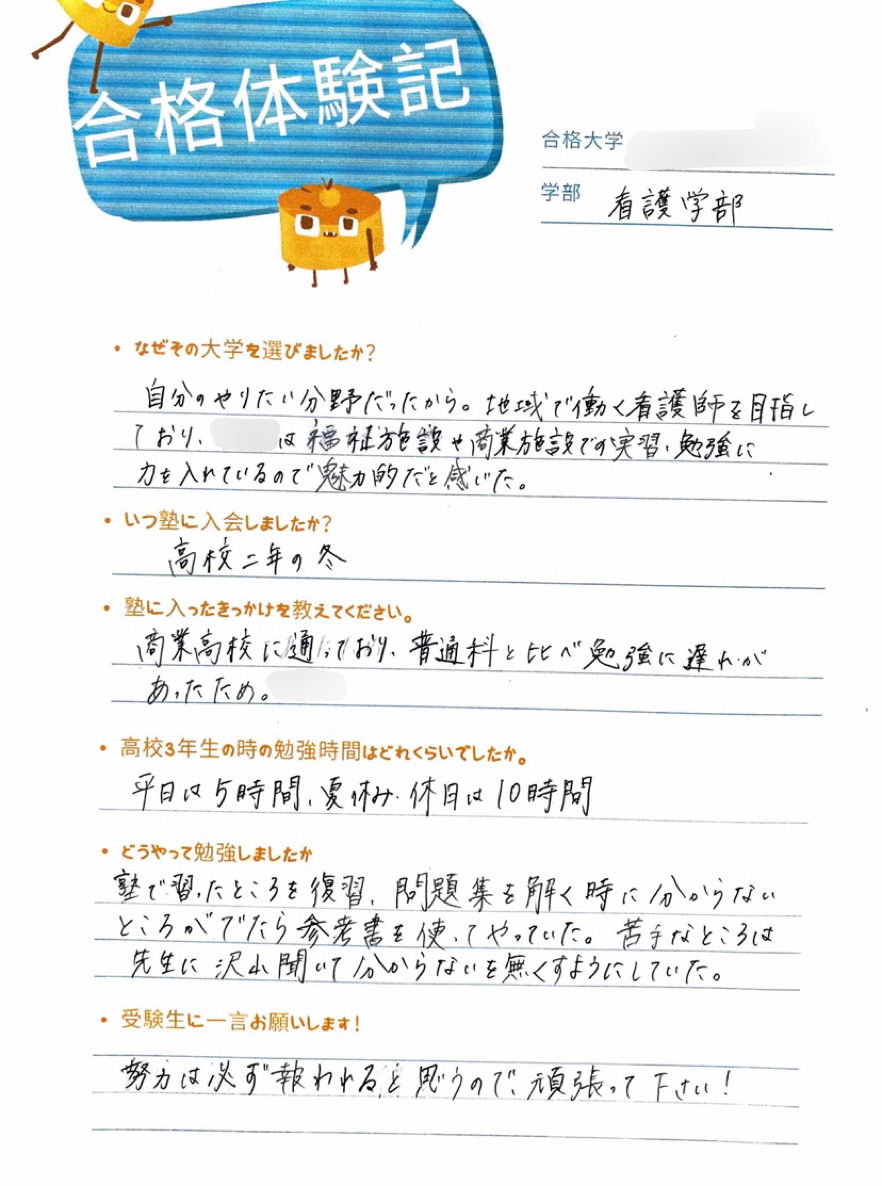 合格体験記
合格大学
学部 看護学部
・なぜその大学を選びましたか?
自分のやりたい分野だったから。地域で働く看護師を目指し
ており、は福祉施設や商業施設での実習、勉強に
力を入れているので魅力的だと感じた。
・いつ塾に入会しましたか?
高校二年の冬
・塾に入ったきっかけを教えてください。
商業高校に通っており、普通科と比べ勉強に遅れが
あったため。
・高校3年生の時の勉強時間はどれくらいでしたか。
平日は5時間、夏休み・休日は10時間
・どうやって勉強しましたか
塾で習ったところを復習、問題集を解く時に分からない
ところがでたら参考書を使ってやっていた。苦手なところは
先生に沢山聞いて分からないを無くすようにしていた。
・受験生に一言お願いします!
努力は必ず報われると思うので、頑張って下さい!